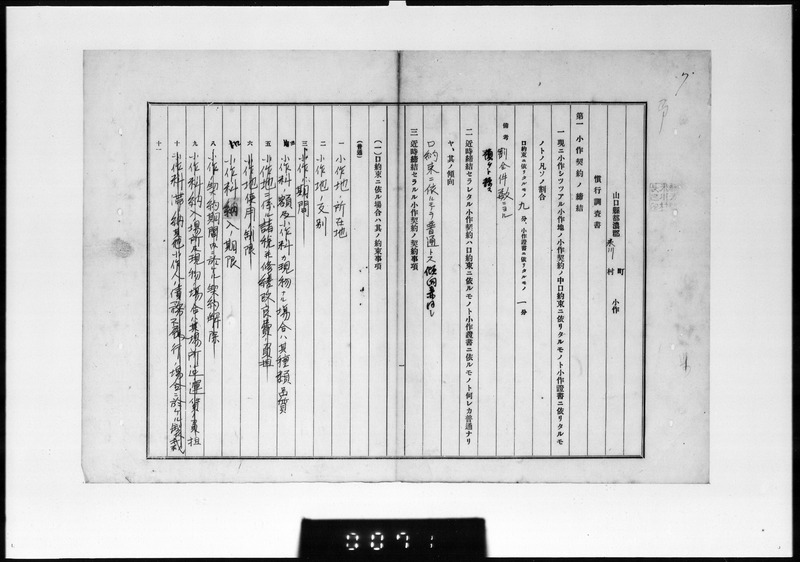 山口縣都濃郡 米川 町村 小作
慣行調査書
第一 小作契約ノ締結
一 現ニ小作シツツアル小作地ノ小作契約ノ中口約束ニ依リタルモノト小作證書ニ依リタルモ
ノトノ凡ソノ割合
口約束ニ依リタルモノ 九 分、小作證書ニ依リタルモノ 一 分
備考 割合件数ニヨル
二 近時締結セラレタル小作契約ハ口約束ニ依ルモノト小作證書ニ依ルモノト何レカ普通ナリ
ヤ、其ノ傾向
口約束ニ依ルモノヲ普通トス
三 近時締結セラルル小作契約ノ契約事項
(一)口約束ニ依ル場合ハ其ノ約束事項
(普通)
一 小作地ノ所在地
二 小作地ノ反別
三 小作ノ期間
小作料ノ額及小作料カ現物ナル場合ハ其種類品質
五 小作地ニ係ル諸税其修繕改良費ノ負担
六 小作地使用ノ制限
小作料納入ノ期限
八 小作契約期間中ニ於ケル契約解除
九 小作料納入場所現物ノ場合ハ其場所迄運賃ノ負担
十 小作料ノ滞納其他小作人ノ債務不履行ノ場合ニ於ケル制裁
十一
0071